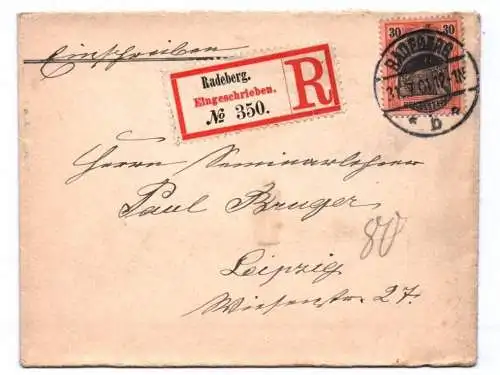 Einschreiben
Radeberg.
Eingeschrieben.
№ 350.
R
30 30
RADEBERG
* b *
Herrn Seminarlehrer
Paul Bruger
80
Leipzig
Wiesenstr. 27.